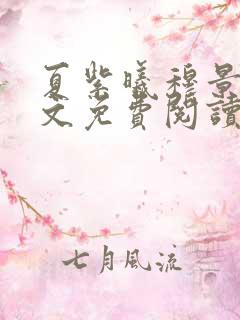 夏紫曦穆景
文免費閱讀
七月風流